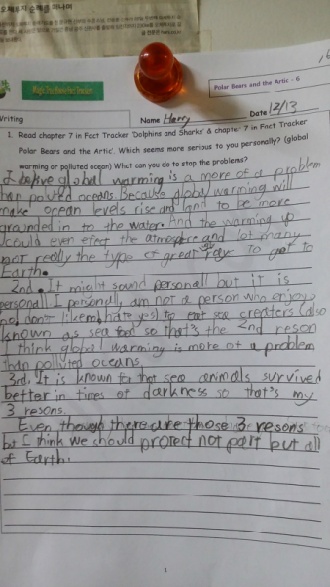 Magic Tree House Fact Tracker
Polar Bears and the Artic - 6
Writing
Name Harry
Date 12/13
1. Read chapter 7 in Fact Tracker 'Dolphins and Sharks' & chapter 7 in Fact Tracker
Polar Bears and the Artic'. Which seems more serious to you personally? (global
warming or polluted ocean) What can you do to stop the problems?
I belive global warming is a more of a problem
than polluted oceans. Because global warming will
make ocean levels rise and land to be more
grounded in to the water. And the warming up
could even eject the atmosphere and lot many
not really the type of great ray to get to
Earth.
2nd. It might sound personall but it is
personall I personaly, am not a person who enjoys
to eat sea creaters (also
known as sea food so that's the 2nd reson
I think global warming is more of a problem
than polluted oceans.
3rd, It is known for that sea animals survived
better in times of darkness so that's my
3 resons.
Even though there are those 3 resons
but I think we should protect not part but all
of Earth.
1